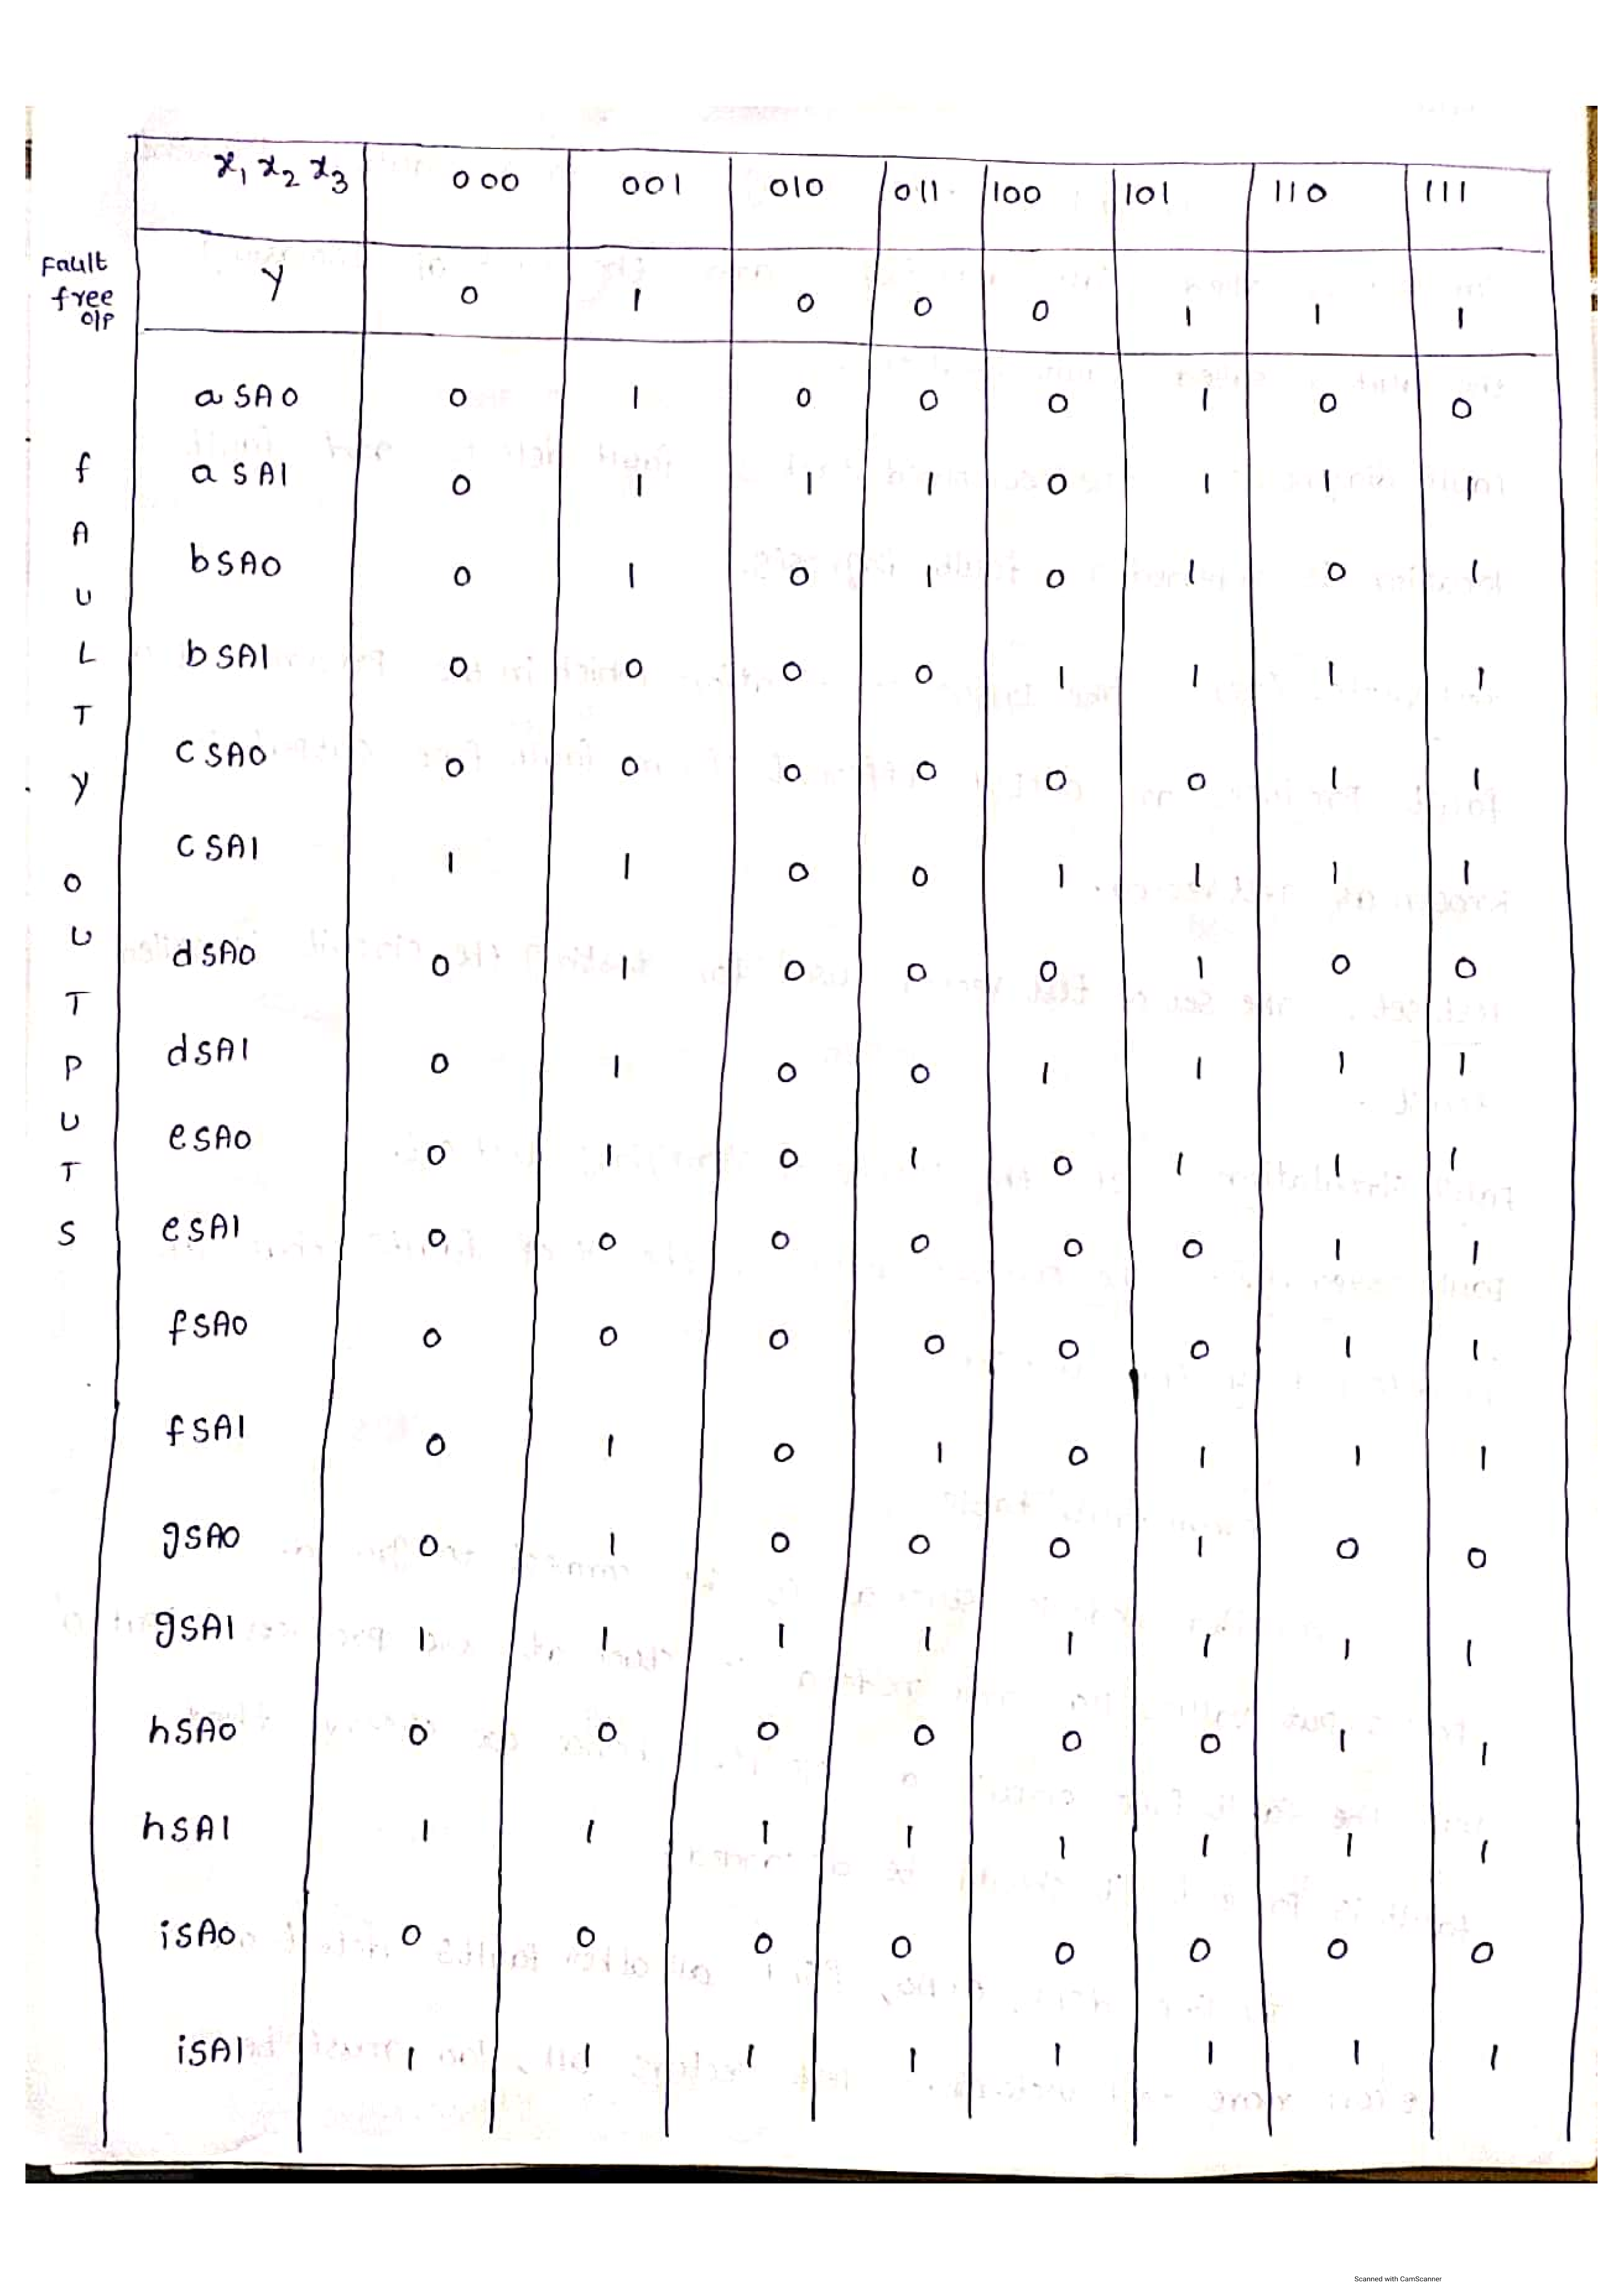 x₁ x₂ x₃ 000 001 010 011 100 101 110 111
Fault free o/p Y 0 1 0 0 0 1 1 1
a SA0 0 1 0 0 0 1 0 0
a SA1 0 1 1 1 0 1 1 1
b SA0 0 1 0 1 0 1 0 1
b SA1 0 0 0 0 1 1 1 1
C SA0 0 0 0 0 0 0 1 1
C SA1 1 1 0 0 1 1 1 1
d SA0 0 1 0 0 0 1 0 0
d SA1 0 1 0 0 1 1 1 1
e SA0 0 1 0 1 0 1 1 1
e SA1 0 0 0 0 0 0 1 1
f SA0 0 0 0 0 0 0 1 1
f SA1 0 1 0 1 0 1 1 1
g SA0 0 1 0 0 0 1 0 0
g SA1 1 1 1 1 1 1 1 1
h SA0 0 0 0 0 0 0 1 1
h SA1 1 1 1 1 1 1 1 1
i SA0 0 0 0 0 0 0 0 0
i SA1 1 1 1 1 1 1 1 1
fAULTY OUTPUTS
Scanned with CamScanner